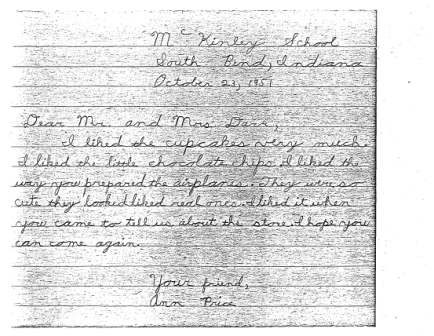 McKinley School
South Bend, Indiana
October 21, 1951
Dear Mr. and Mrs. Dars,
I liked the cupcakes very much.
I liked the little chocolate chips. I liked the
way you prepared the airplanes. They were so
cute they looked liked real ones. I liked it when
you came to tell us about the store. I hope you
can come again.
Your friend,
Ann Price